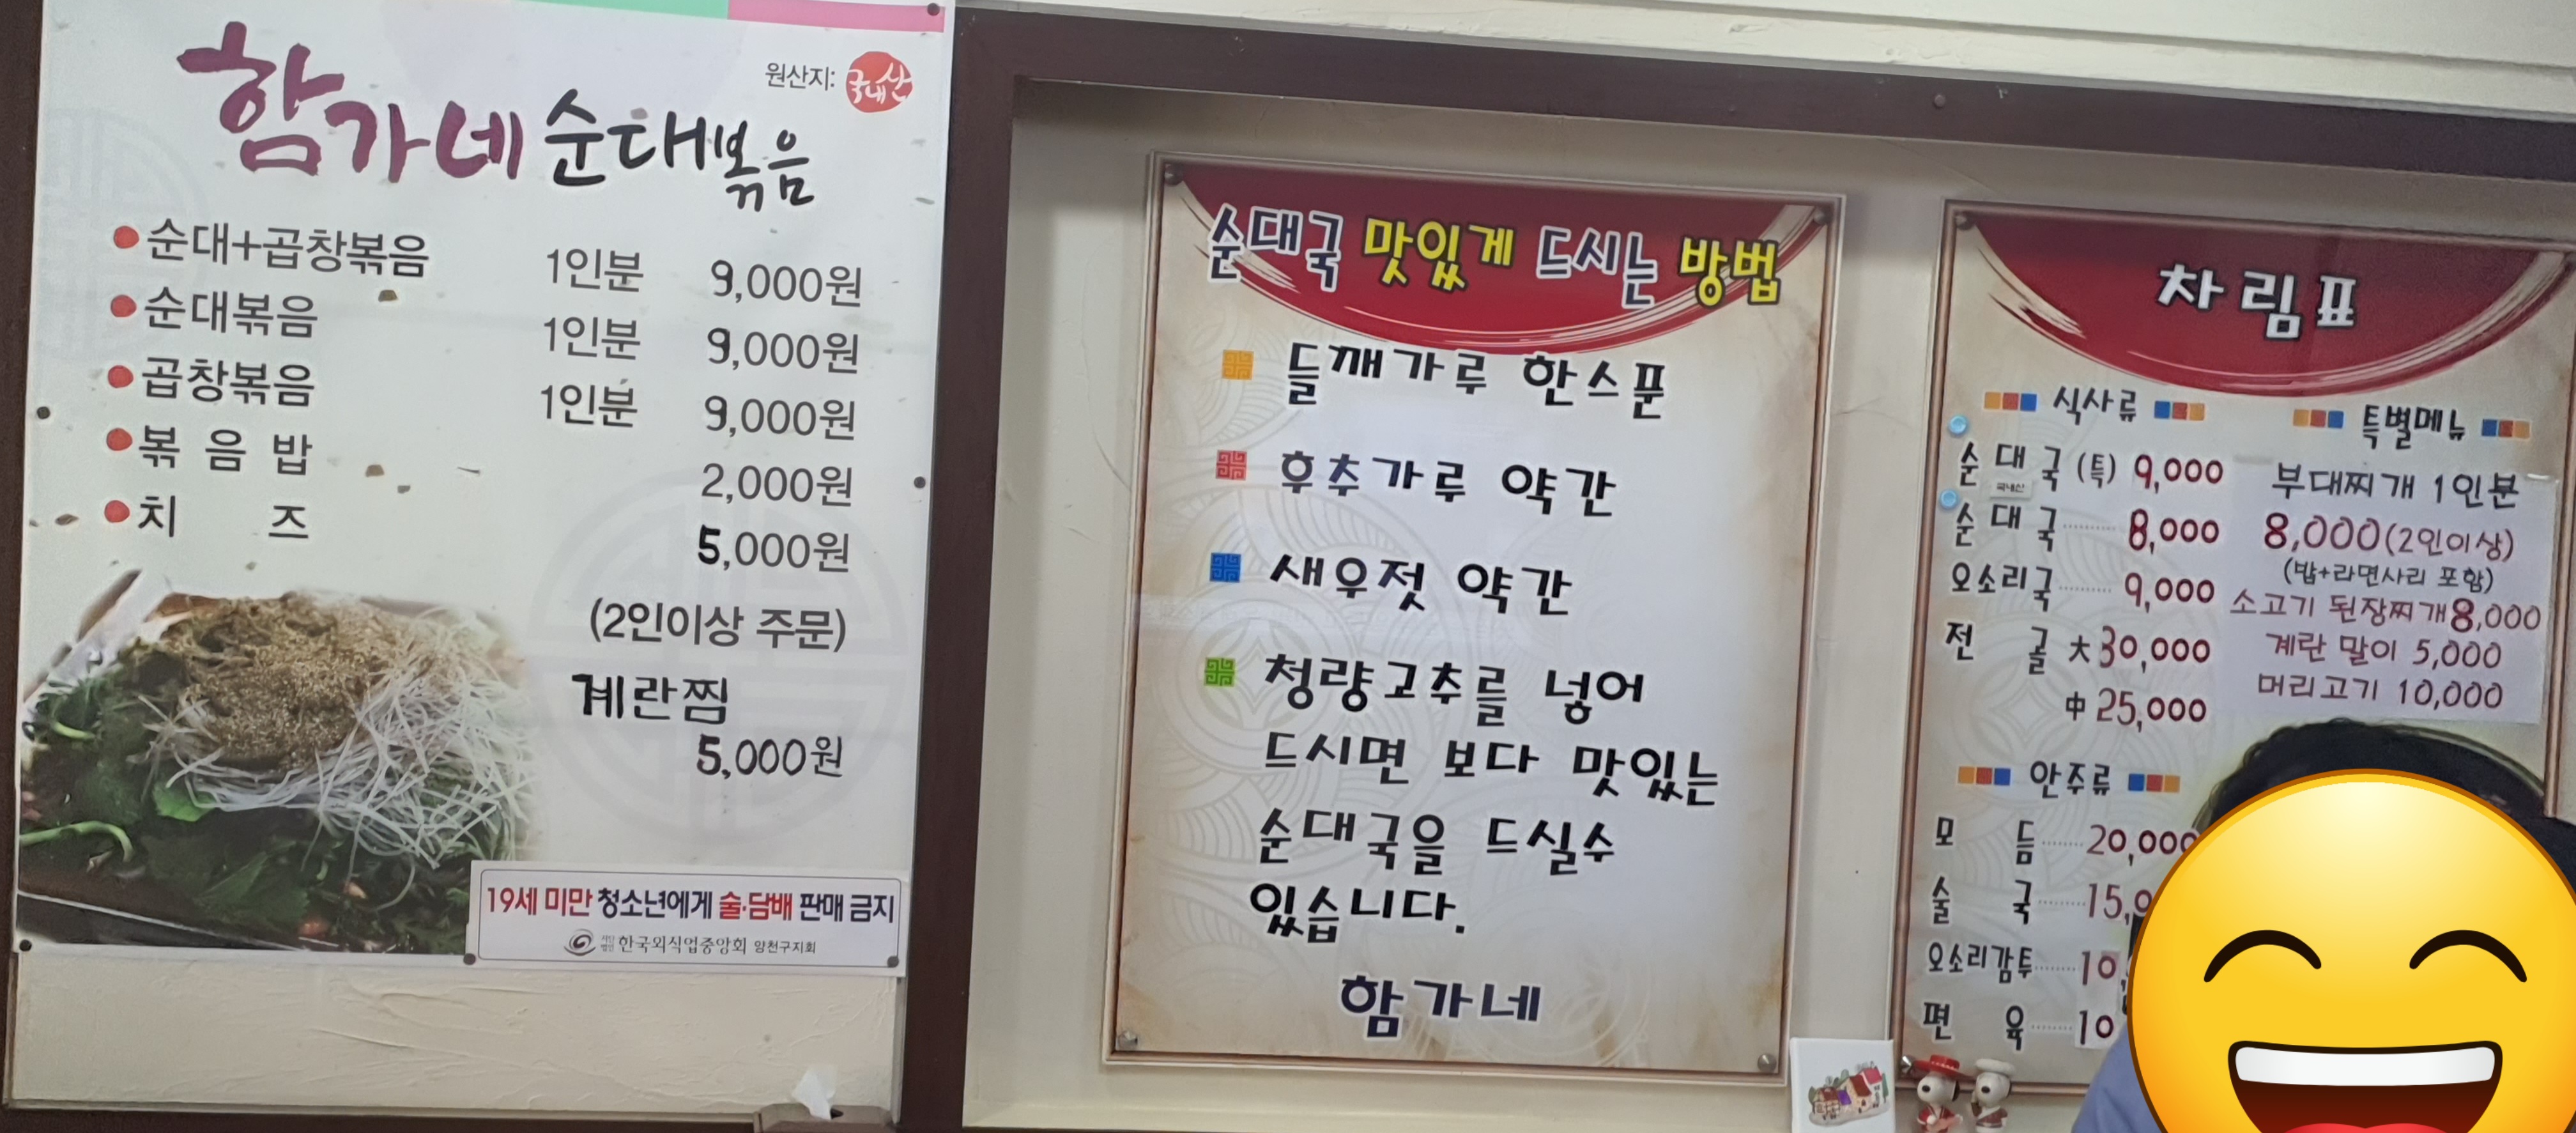 원산지: 국내산
함가네 순대볶음
순대+곱창볶음 1인분 9,000원
순대볶음 1인분 9,000원
곱창볶음 1인분 9,000원
볶음밥 2,000원
치즈 5,000원
(2인이상 주문)
계란찜
5,000원
19세 미만 청소년에게 술·담배 판매 금지
한국외식업중앙회 양천구지회
순대국 맛있게 드시는 방법
들깨가루 한스푼
후추가루 약간
새우젓 약간
청량고추를 넣어
드시면 보다 맛있는
순대국을 드실수
있습니다.
함가네
차림표
식사류
순대국(특) 9,000
국내산
순대국 8,000
오소리국 9,000
전골 大 30,000
中 25,000
안주류
모듬 20,000
술국 15,0
오소리감투 10
편육 10
특별메뉴
부대찌개 1인분
8,000(2인이상)
(밥+라면사리 포함)
소고기 된장찌개 8,000
계란 말이 5,000
머리고기 10,000